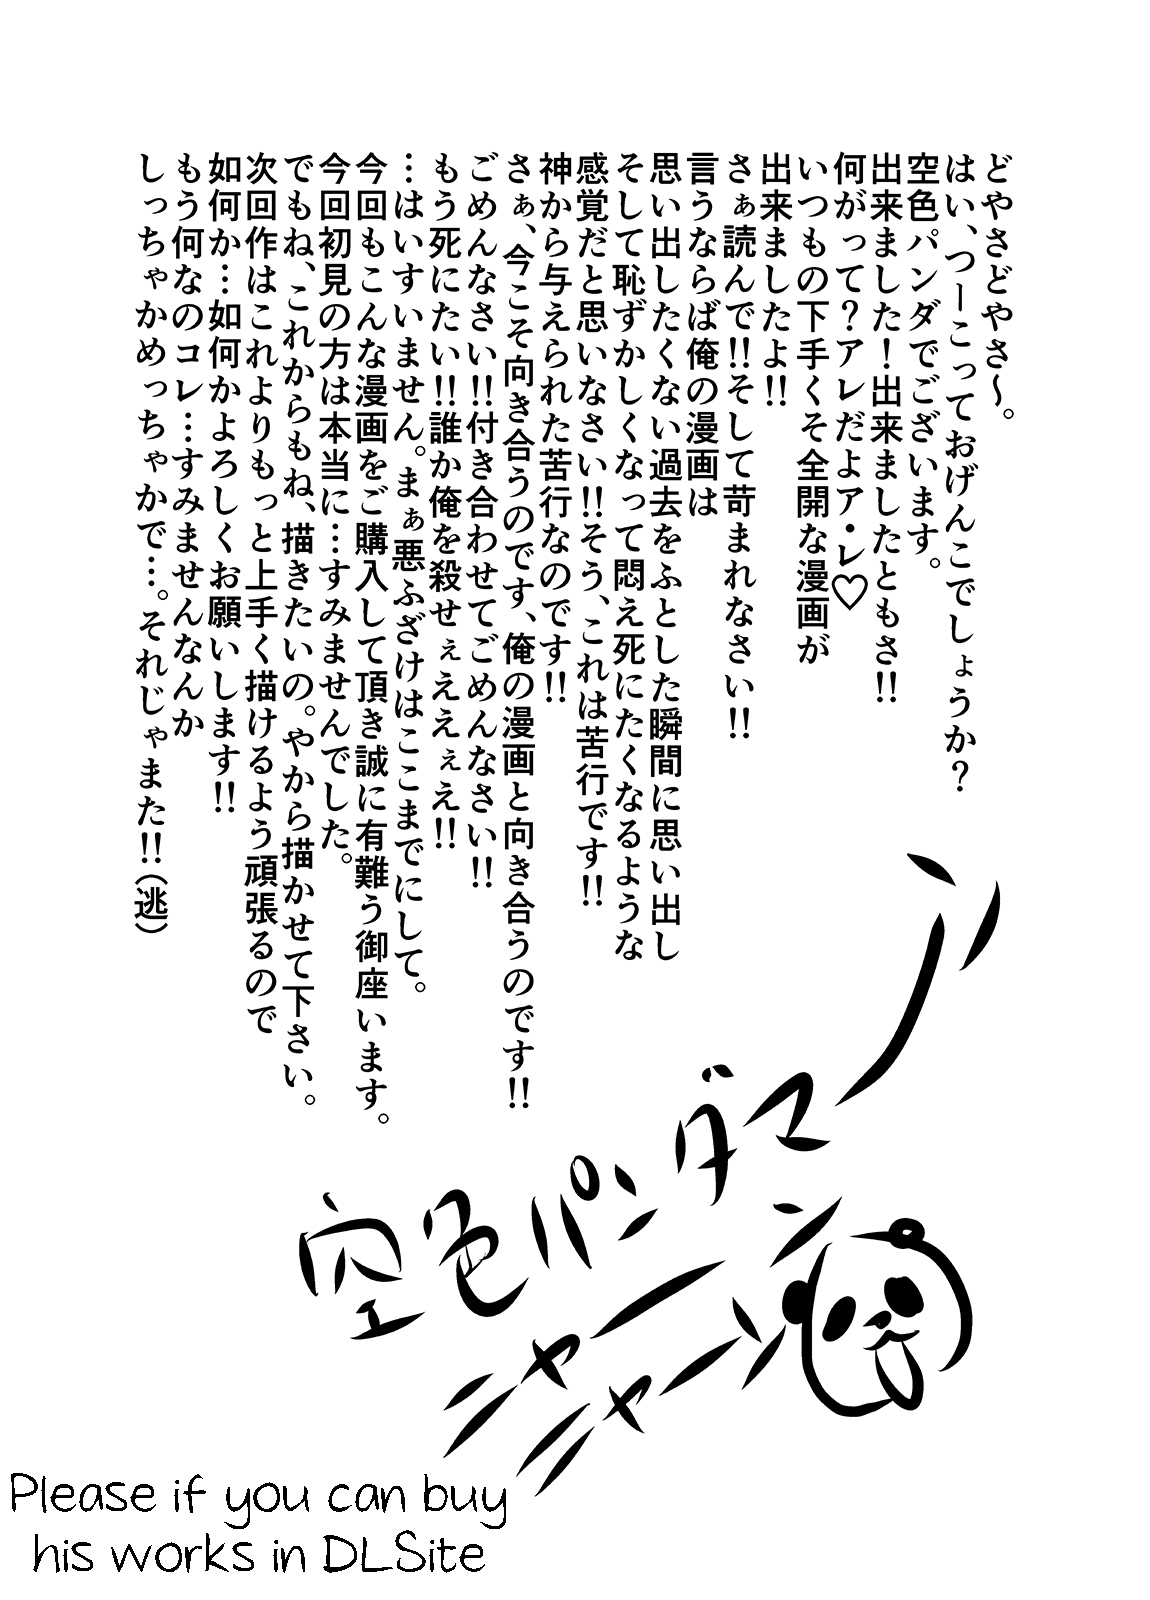 どやさどやさ～。
はい、つーこっておげんこでしょうか？
空色パンダでございます。
出来ました！出来ましたともさ!!
何がって？アレだよア・レ♡
いつもの下手くそ全開な漫画が
出来ましたよ!!
さぁ読んで!!そして苛まれなさい!!
言うならば俺の漫画は
思い出したくない過去をふとした瞬間に思い出し
そして恥ずかしくなって悶え死にたくなるような
感覚だと思いなさい!!そう、これは苦行です!!
神から与えられた苦行なのです!!
さぁ、今こそ向き合うのです、俺の漫画と向き合うのです!!
ごめんなさい!!付き合わせてごめんなさい!!
もう死にたい!!誰か俺を殺せぇえぇえ!!
…はいすいません。まぁ悪ふざけはここまでにして。
今回もこんな漫画をご購入して頂き誠に有難う御座います。
今回初見の方は本当に…すみませんでした。
でもね、これからもね、描きたいの。やから描かせて下さい。
次回作はこれよりもっと上手く描けるよう頑張るので
如何か…如何かよろしくお願いします!!
もう何なのコレ…すみませんなんか
しっちゃかめっちゃかで…。それじゃまた!!(逃)
空色パンダマーン
ニャーン
ニャーン
Please if you can buy
his works in DLSite